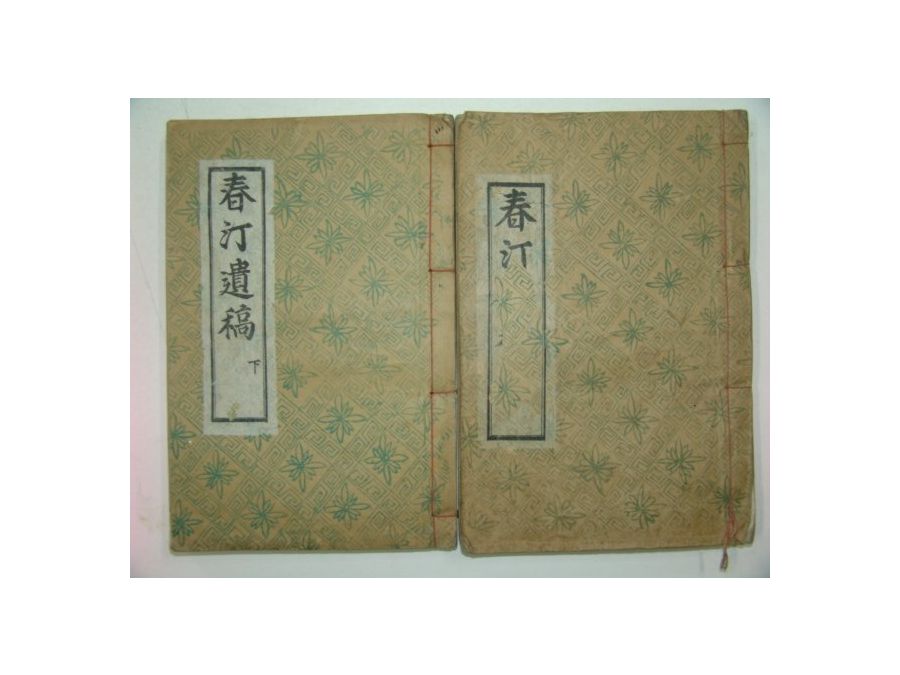 春汀
春汀遺稿
下